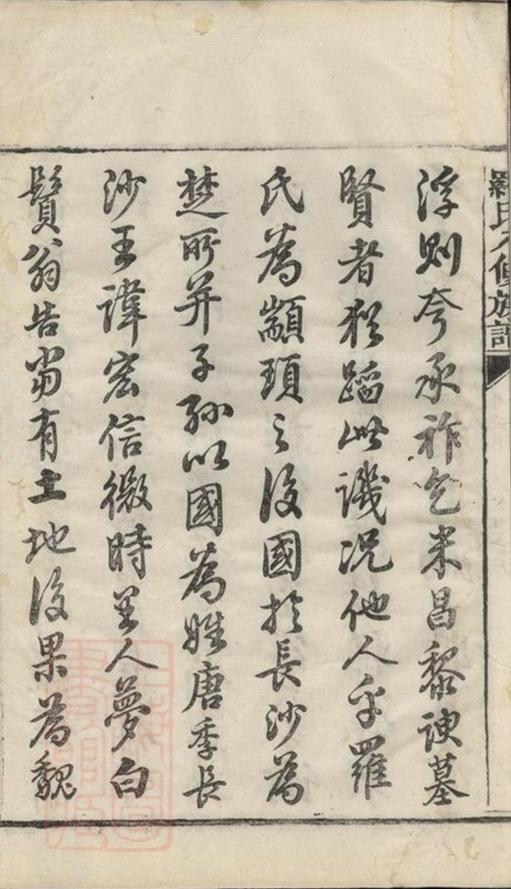 羅氏族譜
浮則夸承祚乞米昌黎諛墓
賢者猶蹈此譏況他人乎羅
氏為顓頊之後國於長沙為
楚所并子孫以國為姓唐季長
沙王諱宏信微時里人夢白
鬚翁告當有土地後果為魏